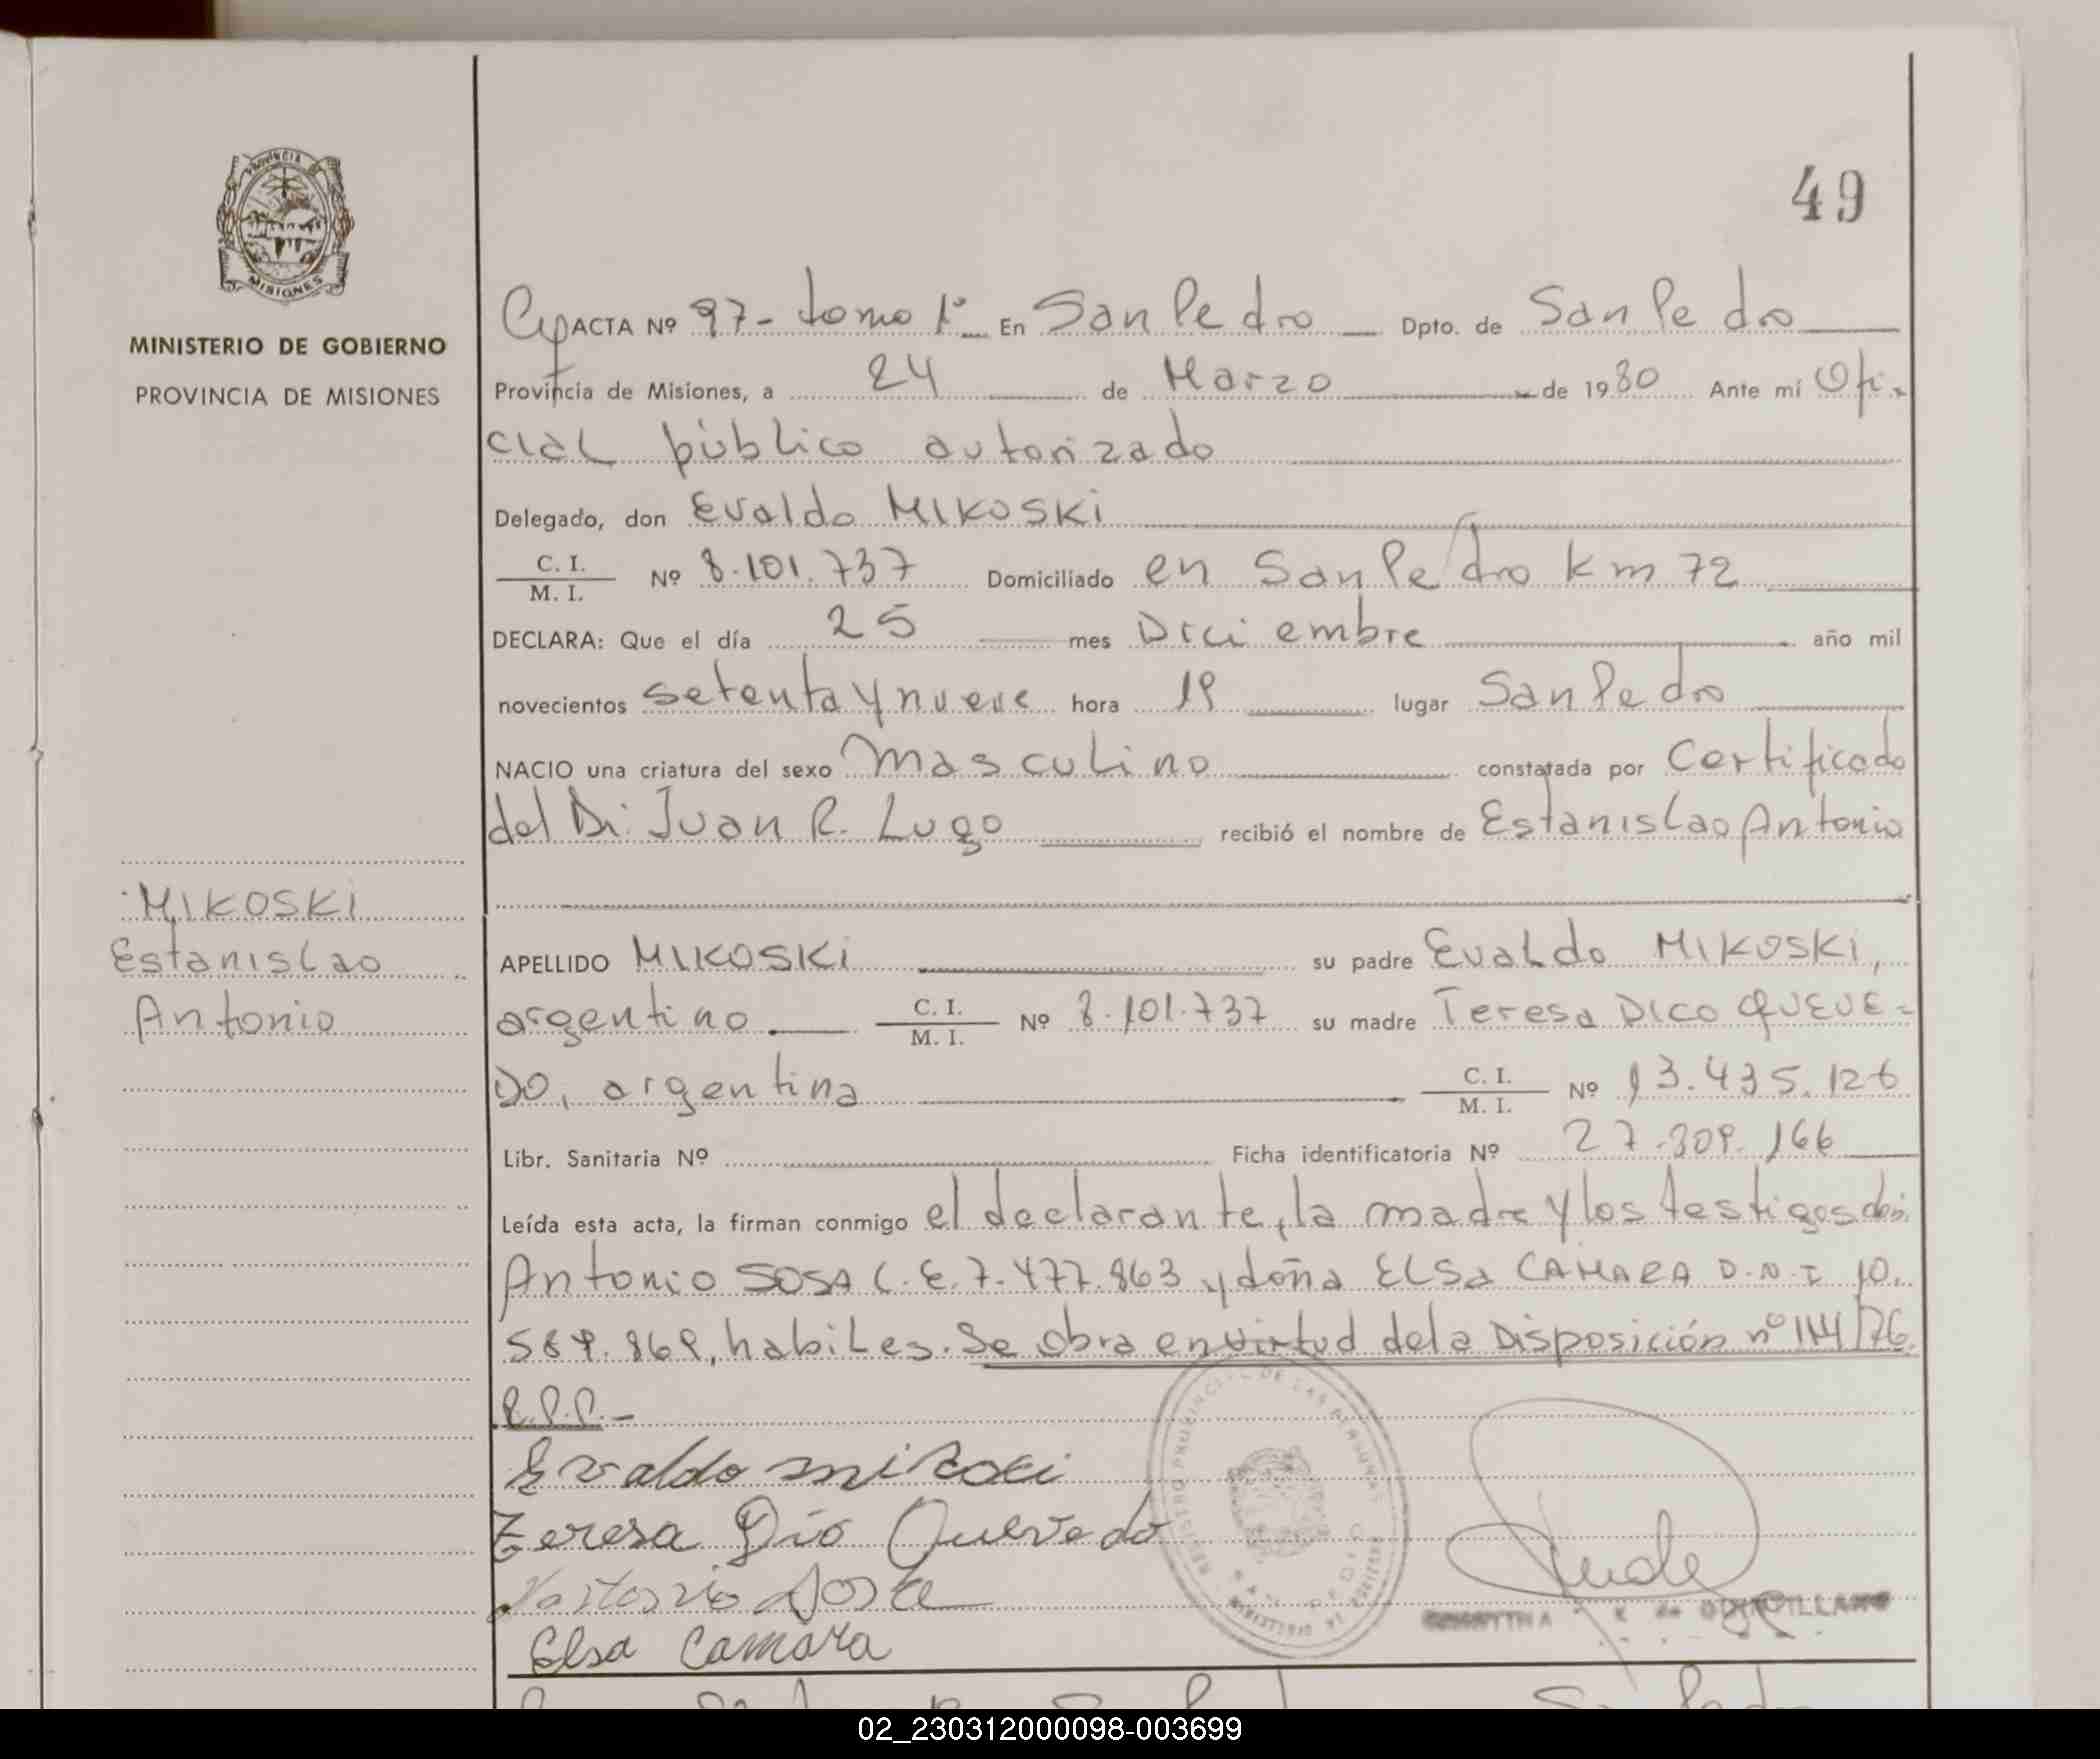 49
PROVINCIA
MISIONES
MINISTERIO DE GOBIERNO
PROVINCIA DE MISIONES
ACTA Nº 97- tomo 1º En San Pedro Dpto. de San Pedro
Provincia de Misiones, a 24 de Marzo de 1980 Ante mí Ofi-
cial público autorizado
Delegado, don Evaldo MIKOSKi
C. I.
M. I. Nº 8.101.737 Domiciliado en San Pedro Km 72
DECLARA: Que el día 25 mes Diciembre año mil
novecientos setenta y nueve hora 19 lugar San Pedro
NACIO una criatura del sexo masculino constatada por Certificado
del Dr. Juan R. Lugo recibió el nombre de Estanislao Antonio
MIKOSKI
Estanislao
Antonio
APELLIDO MIKOSKi su padre Evaldo MIKOSKi,
argentino C. I. M. I. Nº 8.101.737 su madre Teresa DICO QUEVE-
DO, argentina C. I. M. I. Nº 13.435.126
Libr. Sanitaria Nº Ficha identificatoria Nº 27.309.166
Leída esta acta, la firman conmigo el declarante, la madre y los testigos don
Antonio SOSA C.E. 7.477.863 y doña ELSA CAMARA D.N.I 10.
habiles. Se obra en virtud de la Disposición nº 114/76
R.P.P.-
Evaldo mikoski
Teresa Dico Quevedo
Sosa
Elsa Camara
REGISTRO PROVINCIAL DE LAS PERSONAS
SAN PEDRO
02_230312000098-003699